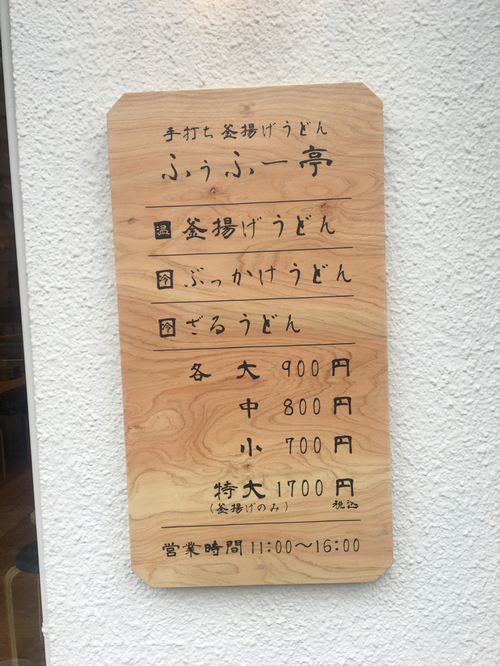 手打ち釜揚げうどん
ふぅふー亭
温 釜揚げうどん
冷 ぶっかけうどん
冷 ざるうどん
各 大 900円
中 800円
小 700円
特大 1700円
(釜揚げのみ) 税込
営業時間 11:00〜16:00